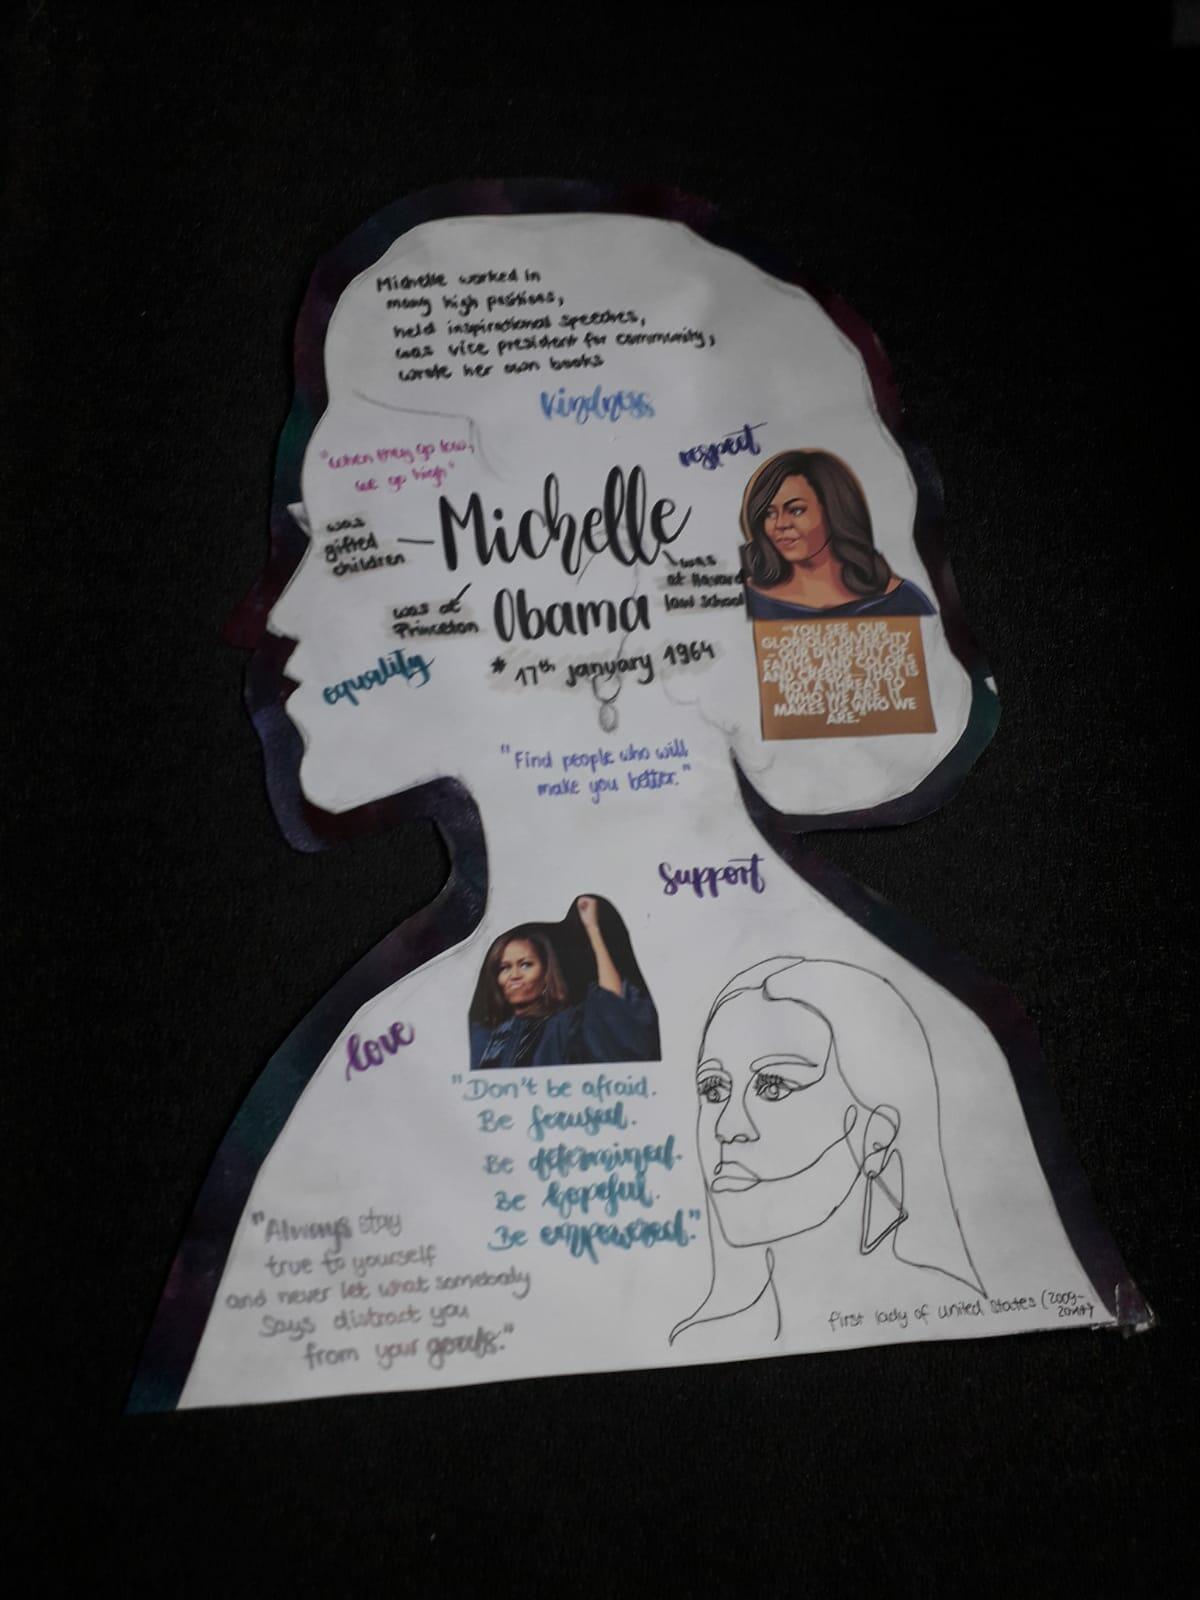 Michelle worked in
many high positions,
held inspirational speeches,
was vice president for community,
wrote her own books
kindness
respect
"when they go low,
we go high"
was
gifted
children
Michelle
Obama
was at
Princeton
was
at Havard
law school
* 17th january 1964
equality
"YOU SEE, OUR
GLORIOUS DIVERSITY
- OUR DIVERSITY OF
FAITHS, AND COLORS
AND CREEDS - THAT IS
NOT A THREAT TO
WHO WE ARE, IT
MAKES US WHO WE
ARE."
"Find people who will
make you better."
support
love
"Don't be afraid.
Be focused.
Be determined.
Be hopeful.
Be empowered."
"Always stay
true to yourself
and never let what somebody
says distract you
from your goals."
first lady of united states (2009-
2017)